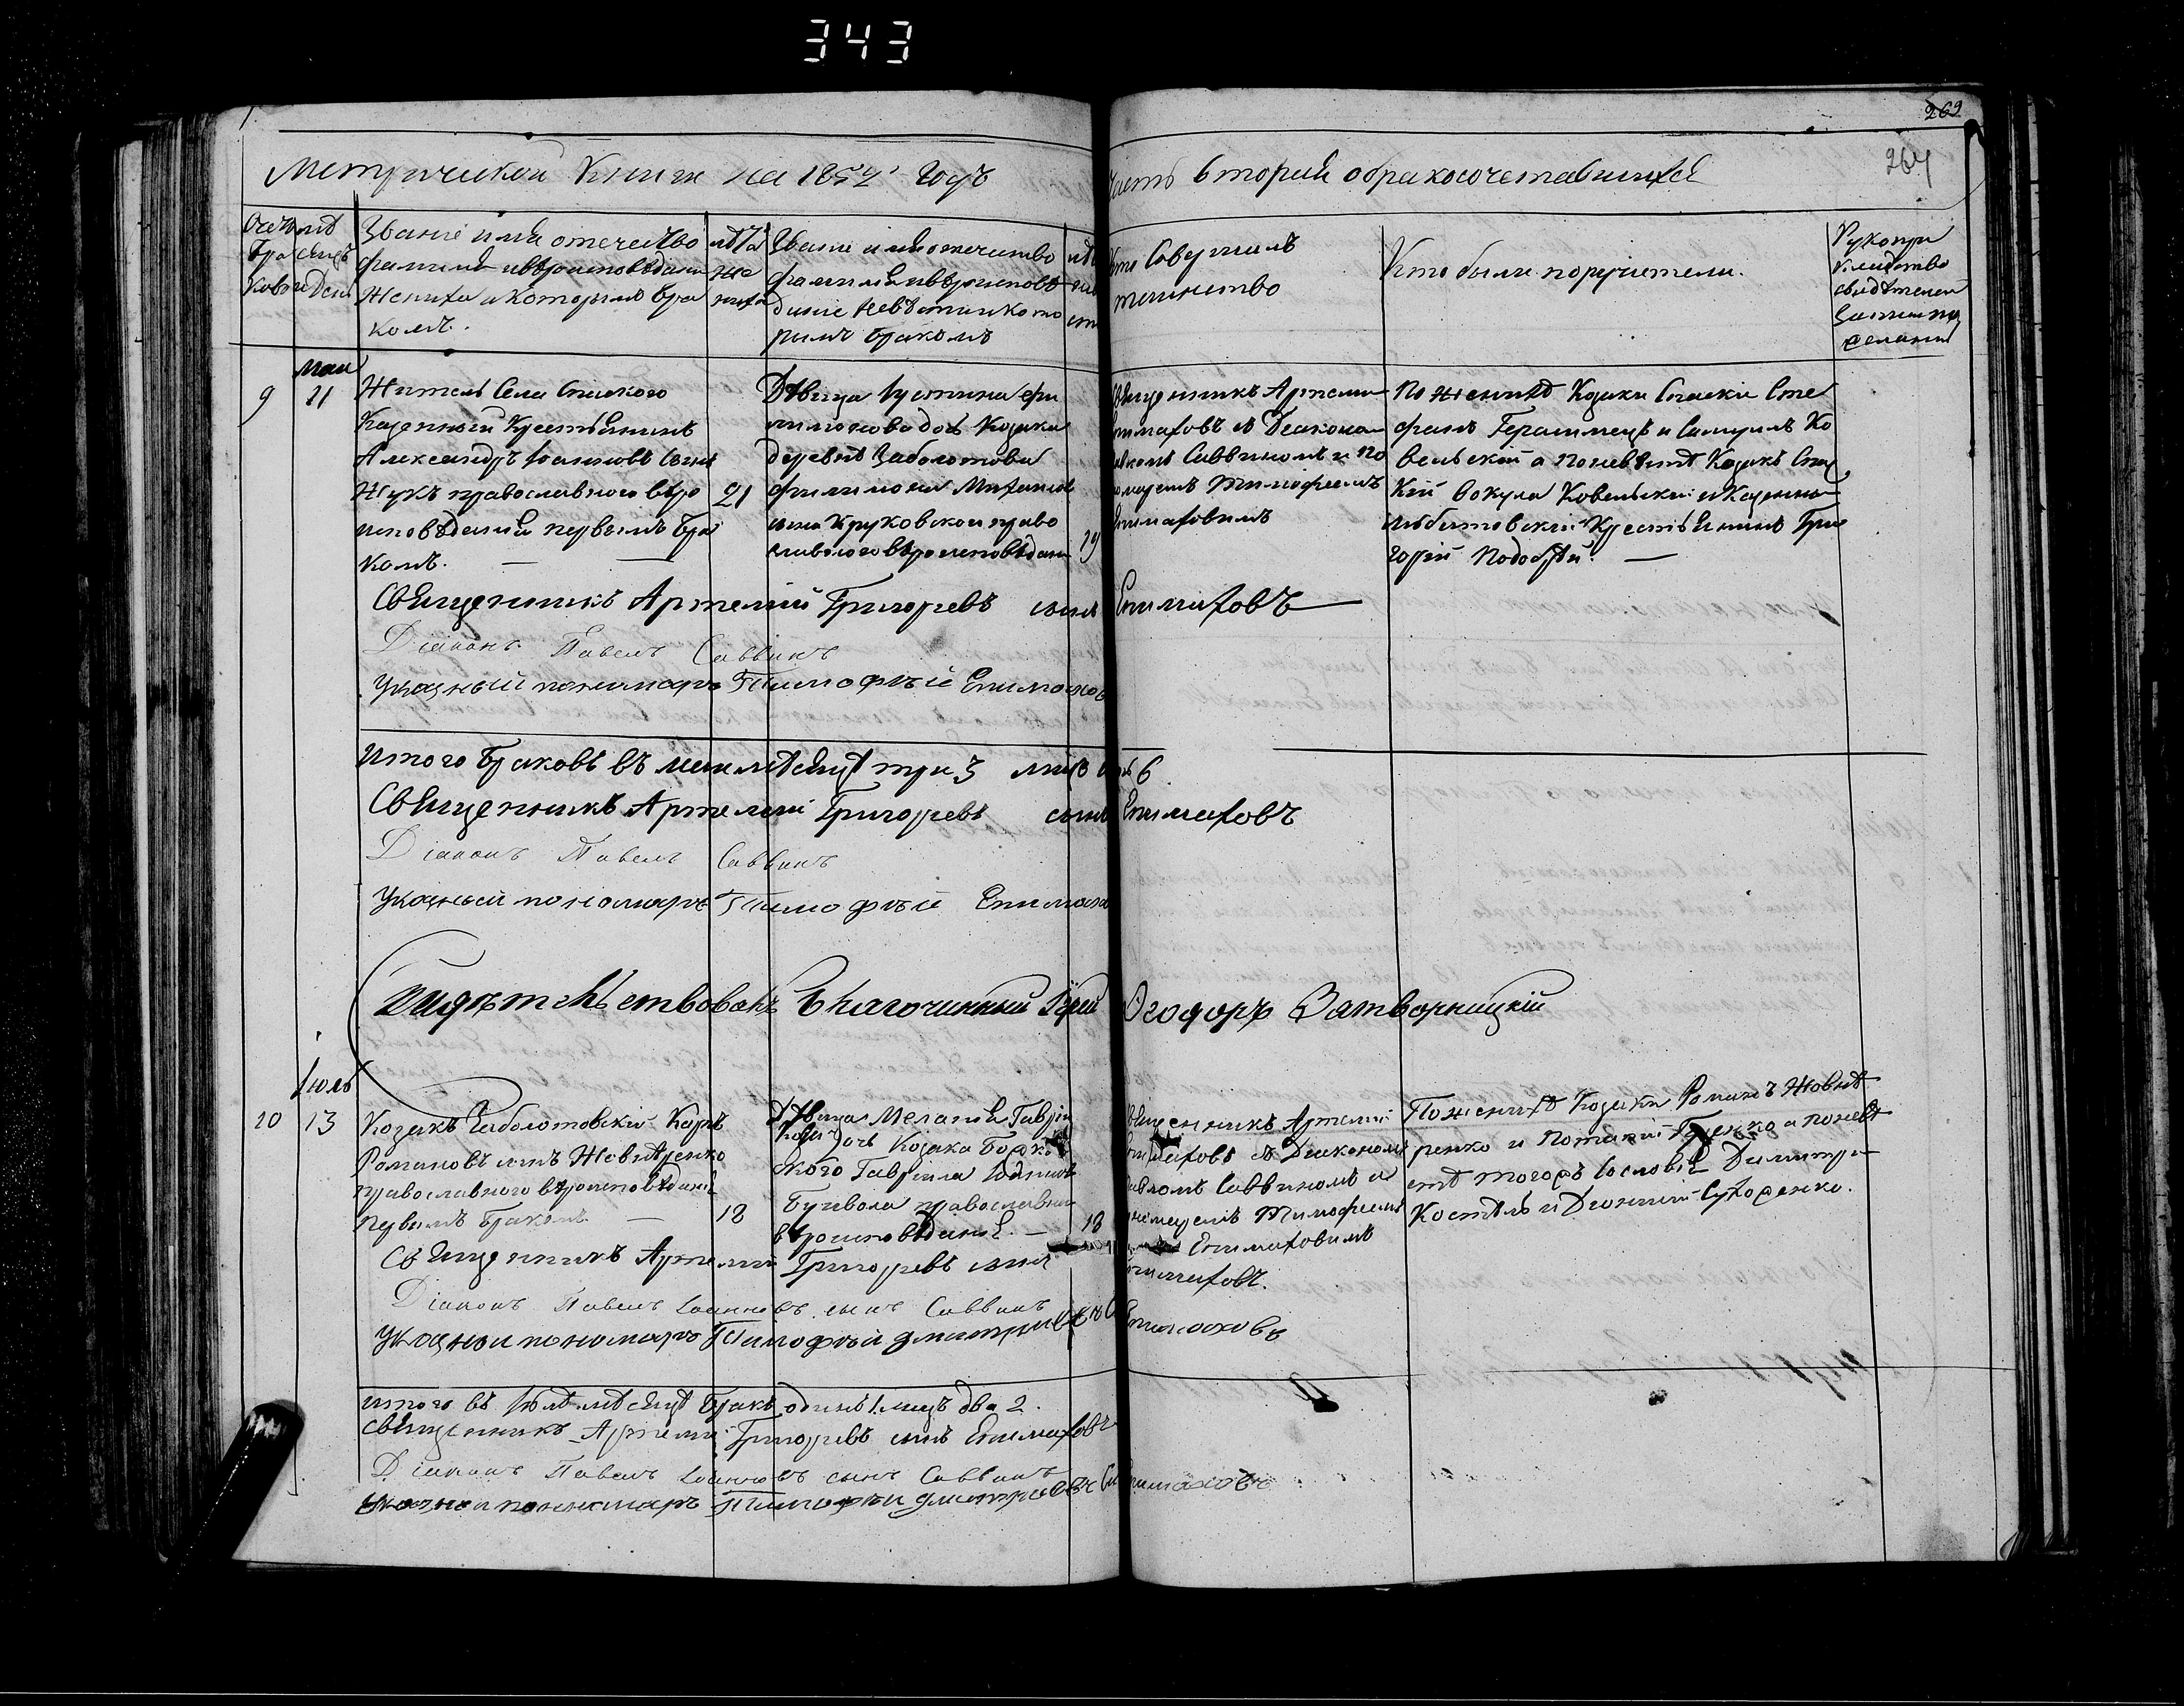 343
269
264
Метрической Книги на 1854 Годъ
Часть вторая о бракосочетавшихся
Счетъ Браковъ
Мѣсяцъ и День
Званіе имя отечество
фамилія и вѣроисповѣданіе
Жениха и которымъ бра
комъ.
лѣта
же
ниха
Званіе имя отечество
фамилія и вѣроисповѣ
даніе Невѣсты и кото
рымъ бракомъ
Кто Совершилъ
таинство
Кто были поручители.
Рукопри
кладство
свидѣтелей
записи по
желанію
9
Маи
21
Житель Села Спаского
Казенный Крестьянинъ
Александръ Іоанновъ Сынъ
Жукъ православнаго вѣро
исповѣданія первымъ бра
комъ.
21
Дѣвица Іустина Фи
лимонова дочь Козака
деревнѣ Заболотова
Филимона
сына Круковской право
славного вѣроисповѣдан
19
Священникъ Артемій
Епимаховъ съ Діакономъ
Павломъ Саввиномъ и По
номаремъ Тимофеемъ
Епимаховимъ
По женихѣ Козаки Спаскіе Сте
фанъ Герасимецъ и Самуилъ Ко
вельскій а по невѣстѣ Козакъ Спас
кій Вокула Ковельскій и Казенный
Крестьянинъ Гри
горій Подобѣй.
Священникъ Артемій Григорьевъ сынъ Епимаховъ
Діаконъ Павелъ Саввинъ
Указный пономарь Тимофѣй Епимахов
Итого браковъ въ маи мѣсяцѣ три 3 лицъ 6
Священникъ Артемій Григорьевъ сынъ Епимаховъ
Діаконъ Павелъ Саввинъ
Указный пономарь Тимофѣй Епимахов
Свидѣтельствовалъ Благочинный Іерей Ѳеодоръ Затворницкій
Іюль
10
13
Козакъ Заболотовскій Карпъ
Романовъ сынъ Жовнѣренко
православнаго вѣроисповѣданія
первымъ бракомъ.
18
Дѣвица Меланія Гаврі
лова дочь Козака Борков
ского Гавріила Іоаннов
Бугвола православнаго
вѣроисповѣданія.
18
Священникъ Артемій
Епимаховъ съ Діакономъ
Павломъ Саввиномъ и
пономаремъ Тимофеемъ
Епимаховимъ
По женихѣ Козаки Романъ Жовнѣ
ренко и Потапій а по невѣ
стѣ тогожъ Сословія Димитрі
Костѣль и Діонисій Сухоренко.
Священникъ Артемій Григорьевъ сынъ Епимаховъ.
Діаконъ Павелъ Іоанновъ сынъ Саввинъ
Указныи пономарь Тимофѣй Дмитриевъ Епимаховъ
Итого въ Іюлѣ мѣсяцѣ бракъ одинъ 1 лицъ два 2.
Священникъ Артемій Григорьевъ сынъ Епимаховъ
Діаконъ Павелъ Іоанновъ сынъ Саввинъ
Указнои пономарь Тимофѣи Дмитриевъ Епимаховъ